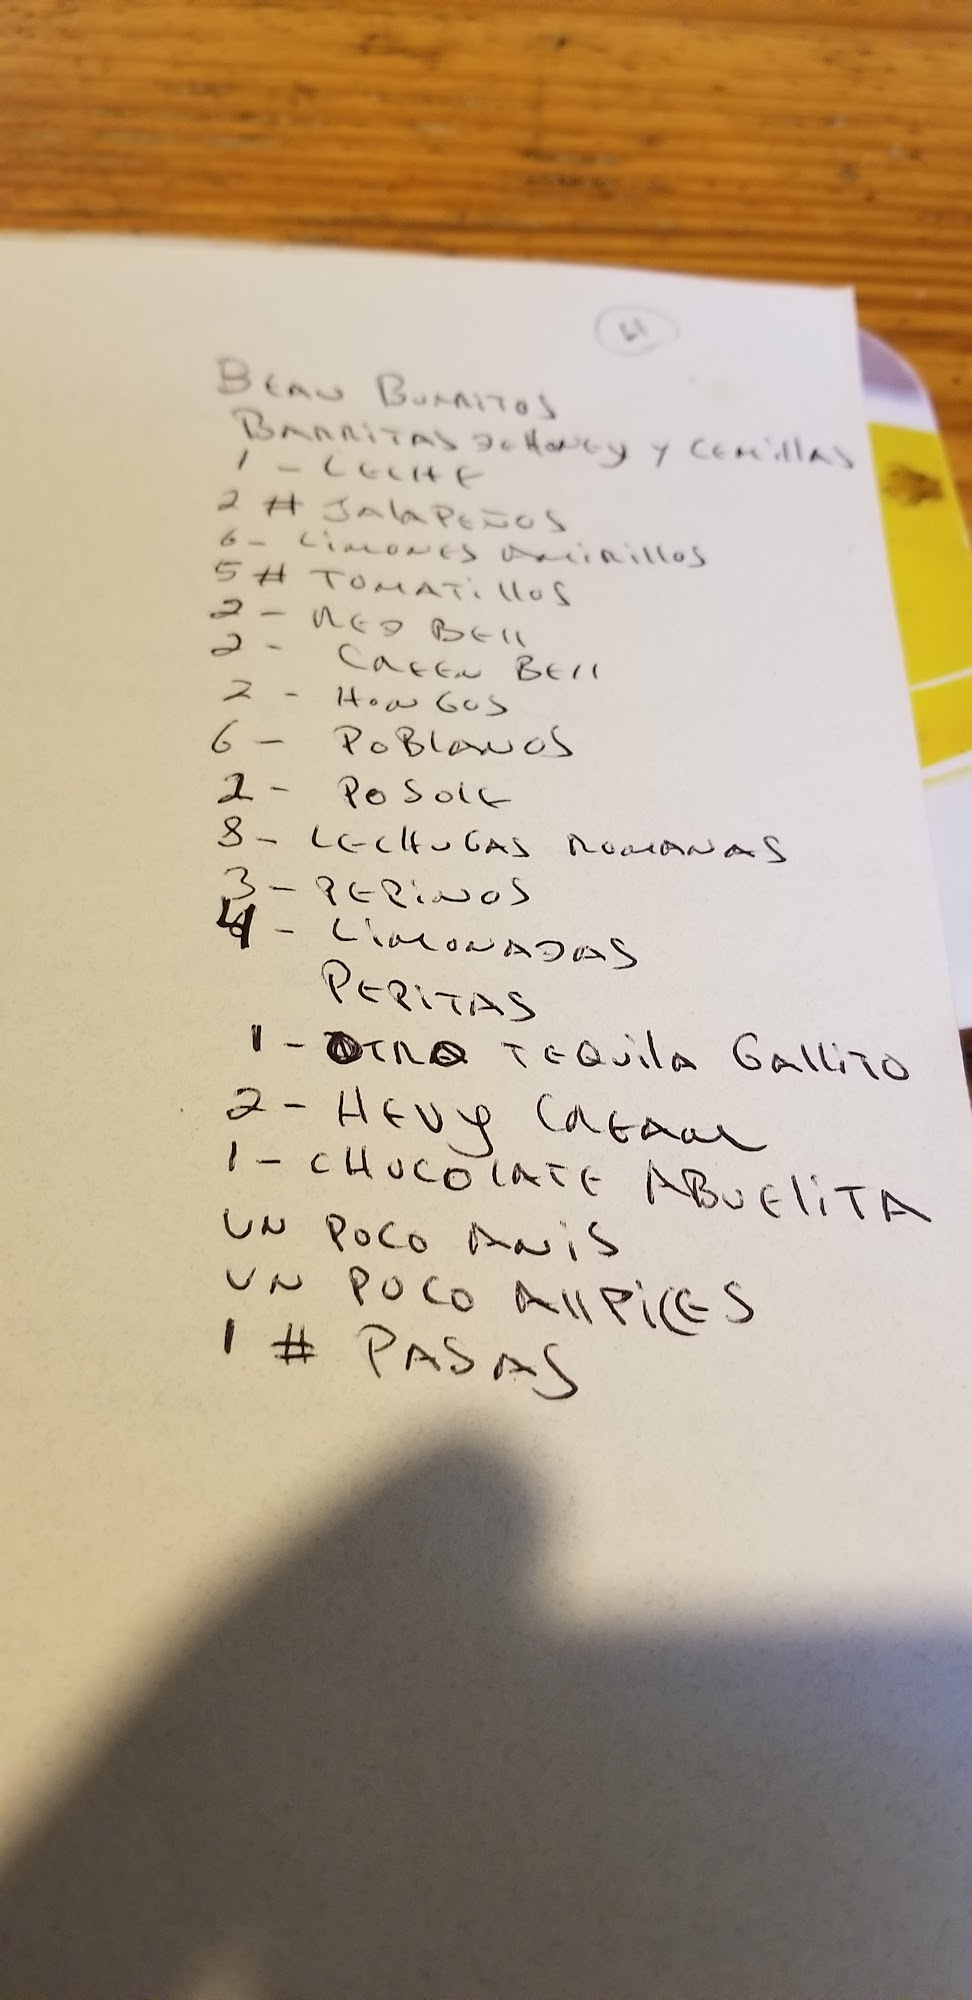 BEAN BURRITOS
BARRITAS DE HONEY Y CEMillAS
1 - LECHE
2 # JALAPEÑOS
6 - LIMONES AMIRILLOS
5 # TOMATILLOS
2 - RED BELL
2 - GREEN BELL
2 - HONGOS
6 - POBLANOS
2 - POSOLE
8 - LECHUGAS ROMANAS
3 - PEPINOS
4 - LIMONADAS
PEPITAS
1 - OTRO TEQUILA GALLITO
2 - HEVY CREAM
1 - CHOCOLATE ABUELITA
UN POCO ANIS
UN POCO ALLPICES
1 # PASAS